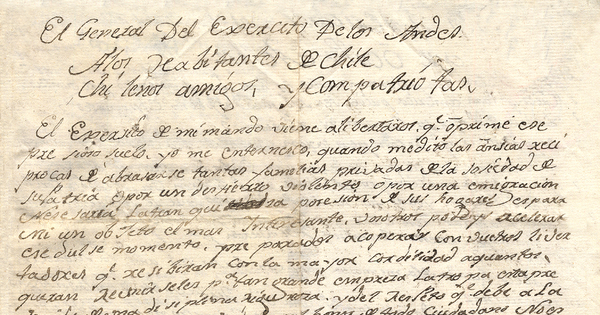 El General Del Exercito Delos Andes
Alos Havitantes de Chile
Chilenos amigos, y Compatriotas,
El Exercito de mi mando viene alibertaros, q.e oprime ese
presioso suelo, yo me enternesco, quando medito las ansias reci
procas de abrasarse tantas familias privadas de la sosiedad de
su Patria, o por un destierro violento, o por una emigracion
Nesesaria. La tranquila posesion de sus hogares, es para
mi un objeto el mas Interesante, vosotros podeys acelerar
ese dulse momento, preparados a coperar con vuestros liver
tadores q.e resibiran con la mayor cordialidad aquantos
quieran Reunirseles p.a tan grande empresa La tropa esta pre
y del Respeto q.e debe a la